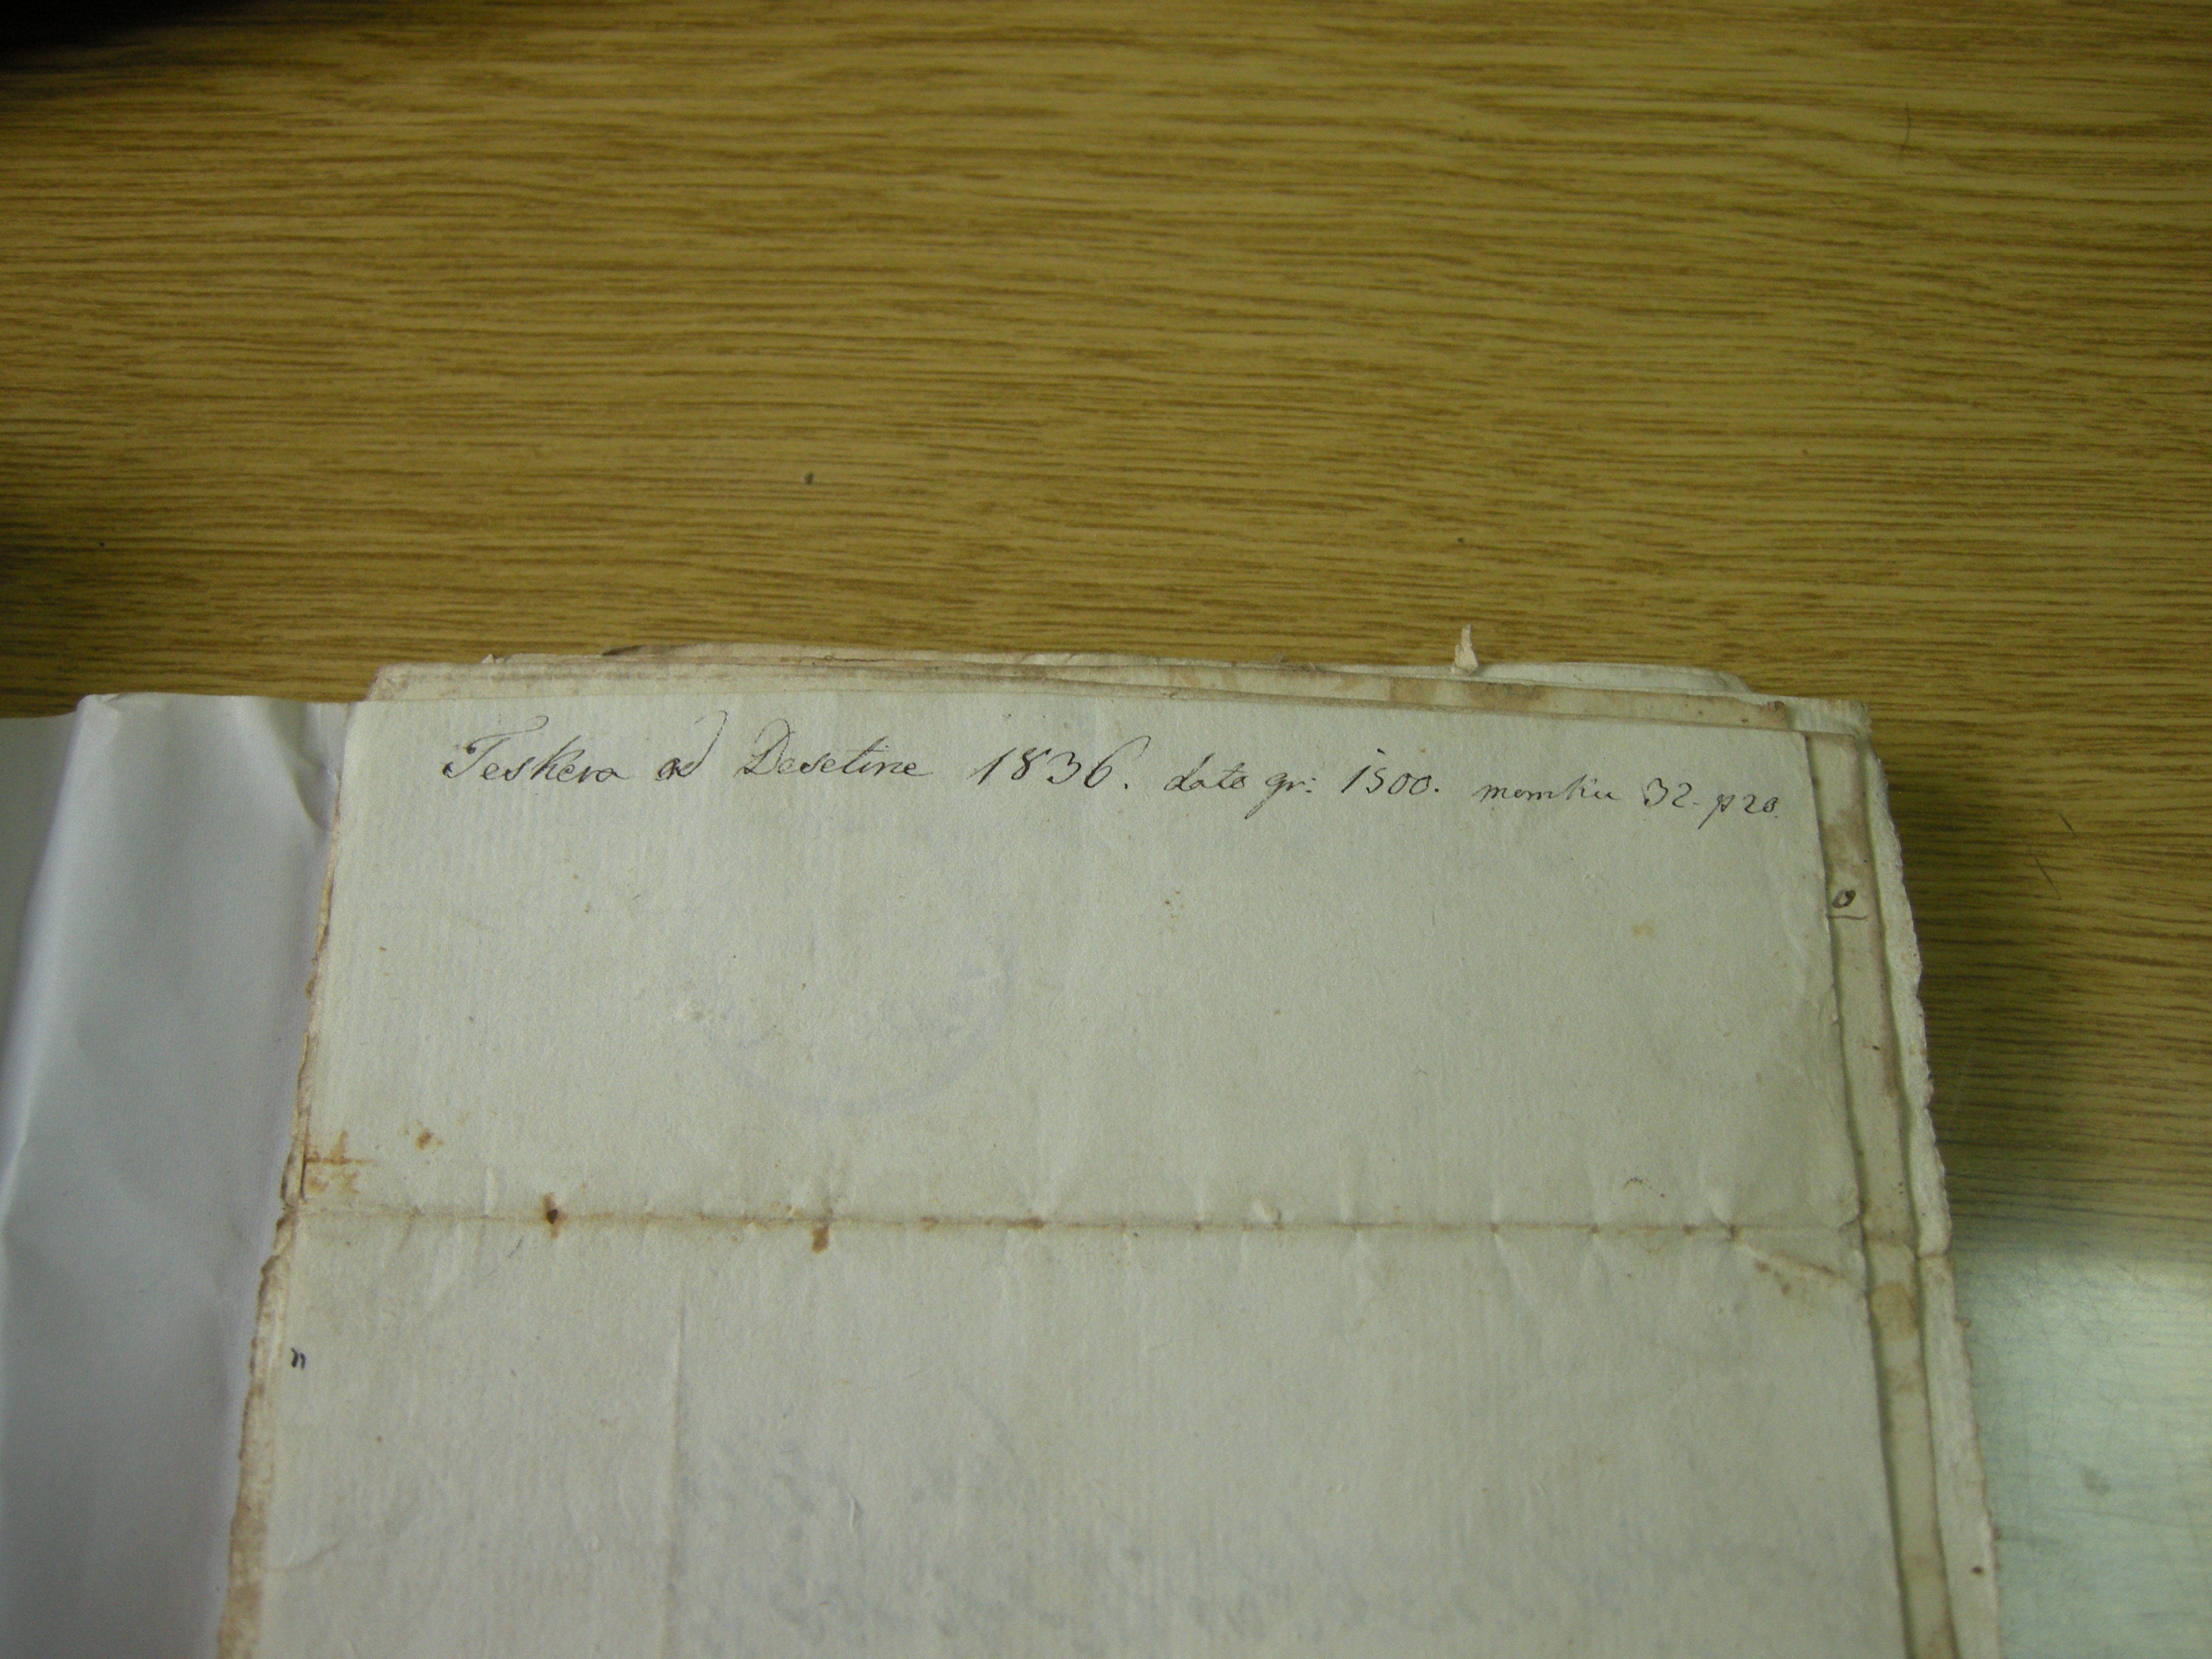 Teskera od Desetine 1836. dato gr: 1500. momku 32. p 20.
o
n